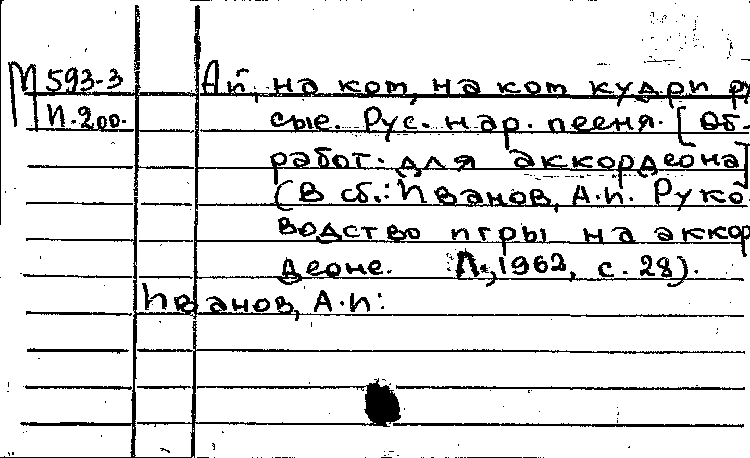 М 593-3
И.200.
Ай, на кот, на кот кудри ру
сые. Рус. нар. песня. [Об.
работ. для аккордеона]
(В сб.: Иванов, А.И. Руко
водство игры на аккор
деоне. Л., 1962, с. 28).
Иванов, А.И.